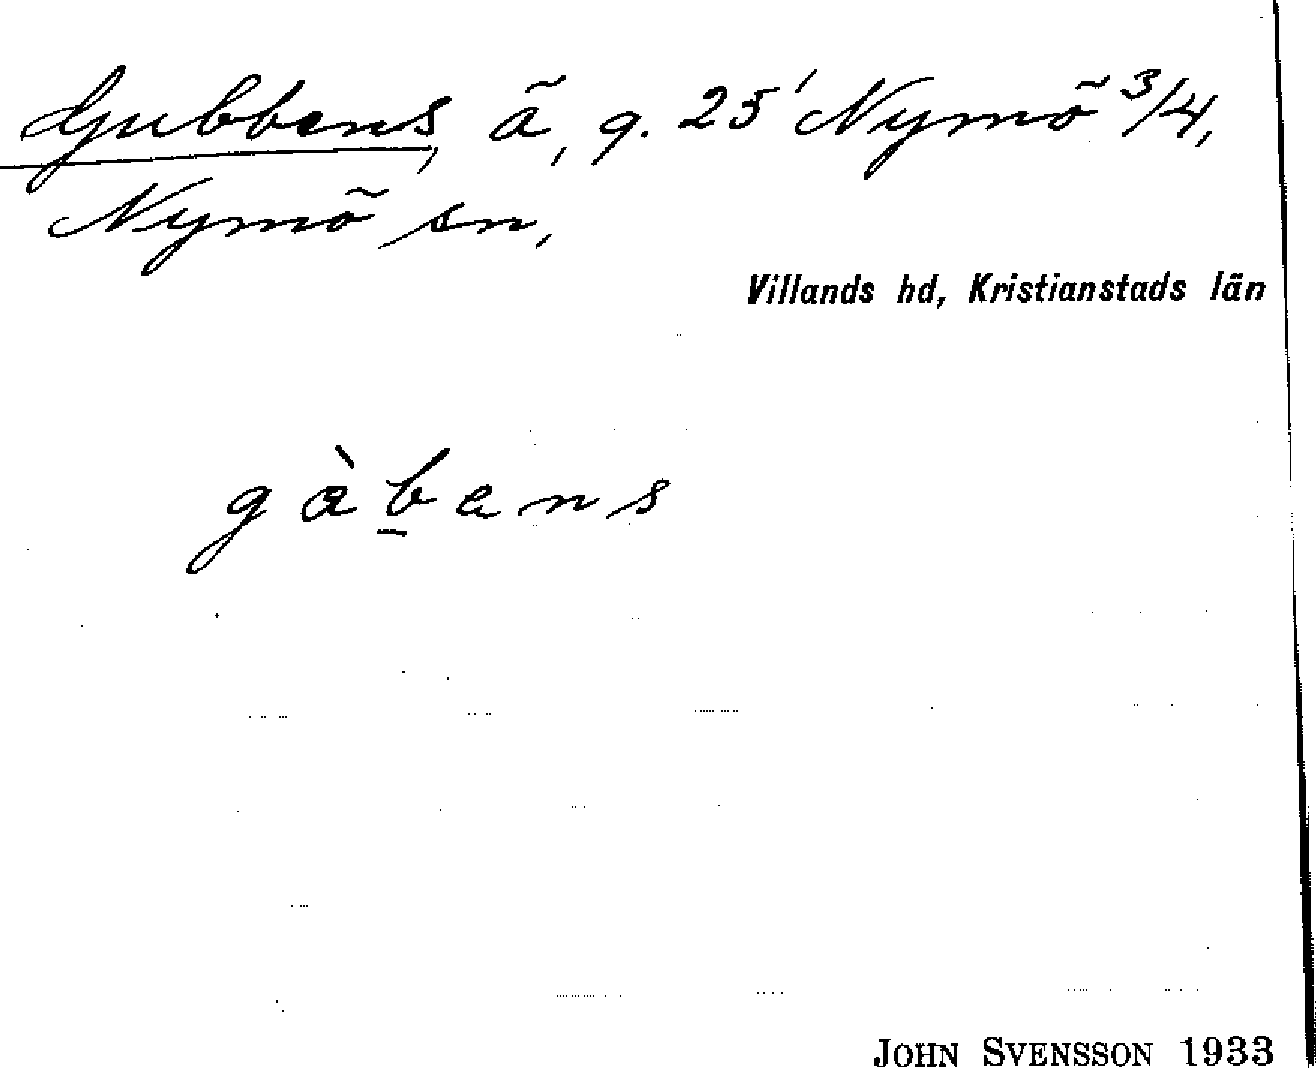 Gubbens, ä, g. 25 Nymö 3/4,
Nymö sn,
Villands hd, Kristianstads län
gàbens
JOHN SVENSSON 1933